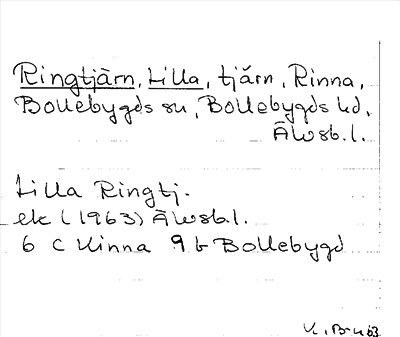 Ringtjärn, Lilla, tjärn, Rinna,
Bollebygds sn, Bollebygds hd,
Älvsb.l.
Lilla Ringtj.
ek (1963) Älvsb.l.
6 C Kinna 9 b Bollebygd